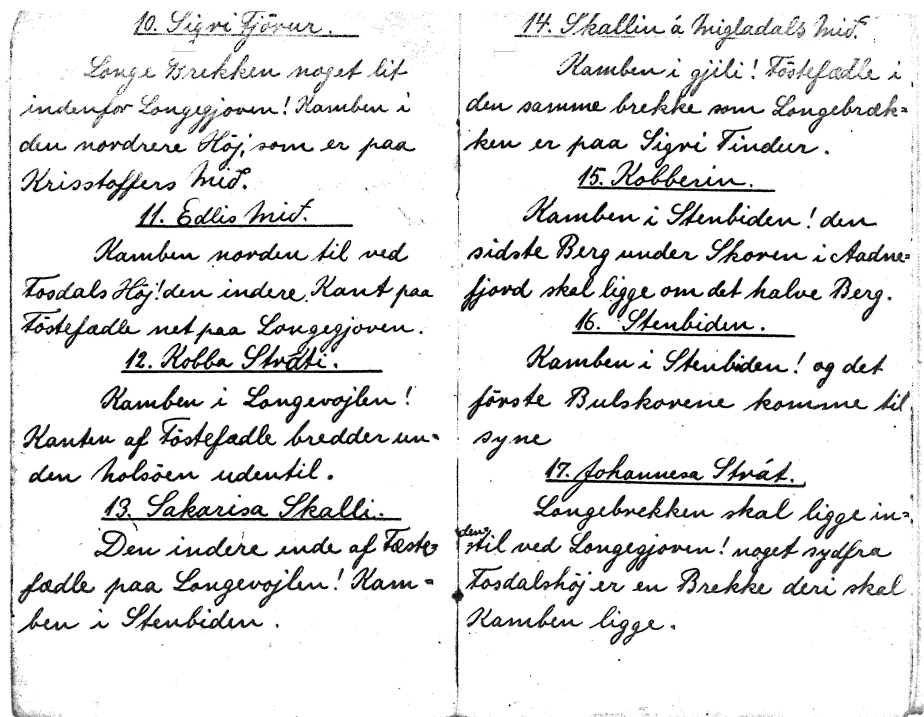 10. Sigri Fjövur.
Longe Brekken noget lit
indenfor Longegjoven! Kamben i
den nordrere Höj, som er paa
Krisstoffers Mið.
11. Edlis Mið.
Kamben norden til ved
Fosdals Höj! den indere Kant paa
Föstefædle net paa Longegjoven.
12. Kobba Stráti.
Kamben i Longevojlen!
Kanten af Föstefædle bredder un=
den holsöen udentil.
13. Sakarisa Skalli.
Den indere ende af Fæste=
fædle paa Longevojlen! Kam=
ben i Stenbiden.
14. Skallin á Migladals Mið.
Kamben i gjili! Föstefædle i
den samme brekke som Longebræk=
ken er paa Sigri Tindur.
15. Kobberin.
Kamben i Stenbiden! den
sidste Berg under Skoren i Aadne=
fjord skal ligge om det halve Berg.
16. Stenbiden.
Kamben i Stenbiden! og det
förste Bulskorene komme til
syne
17. Johannesa Strát.
Longebrekken skal ligge in=
den=til ved Longegjoven! noget sydfra
Fosdalshöj er en Brekke deri skal
Kamben ligge.